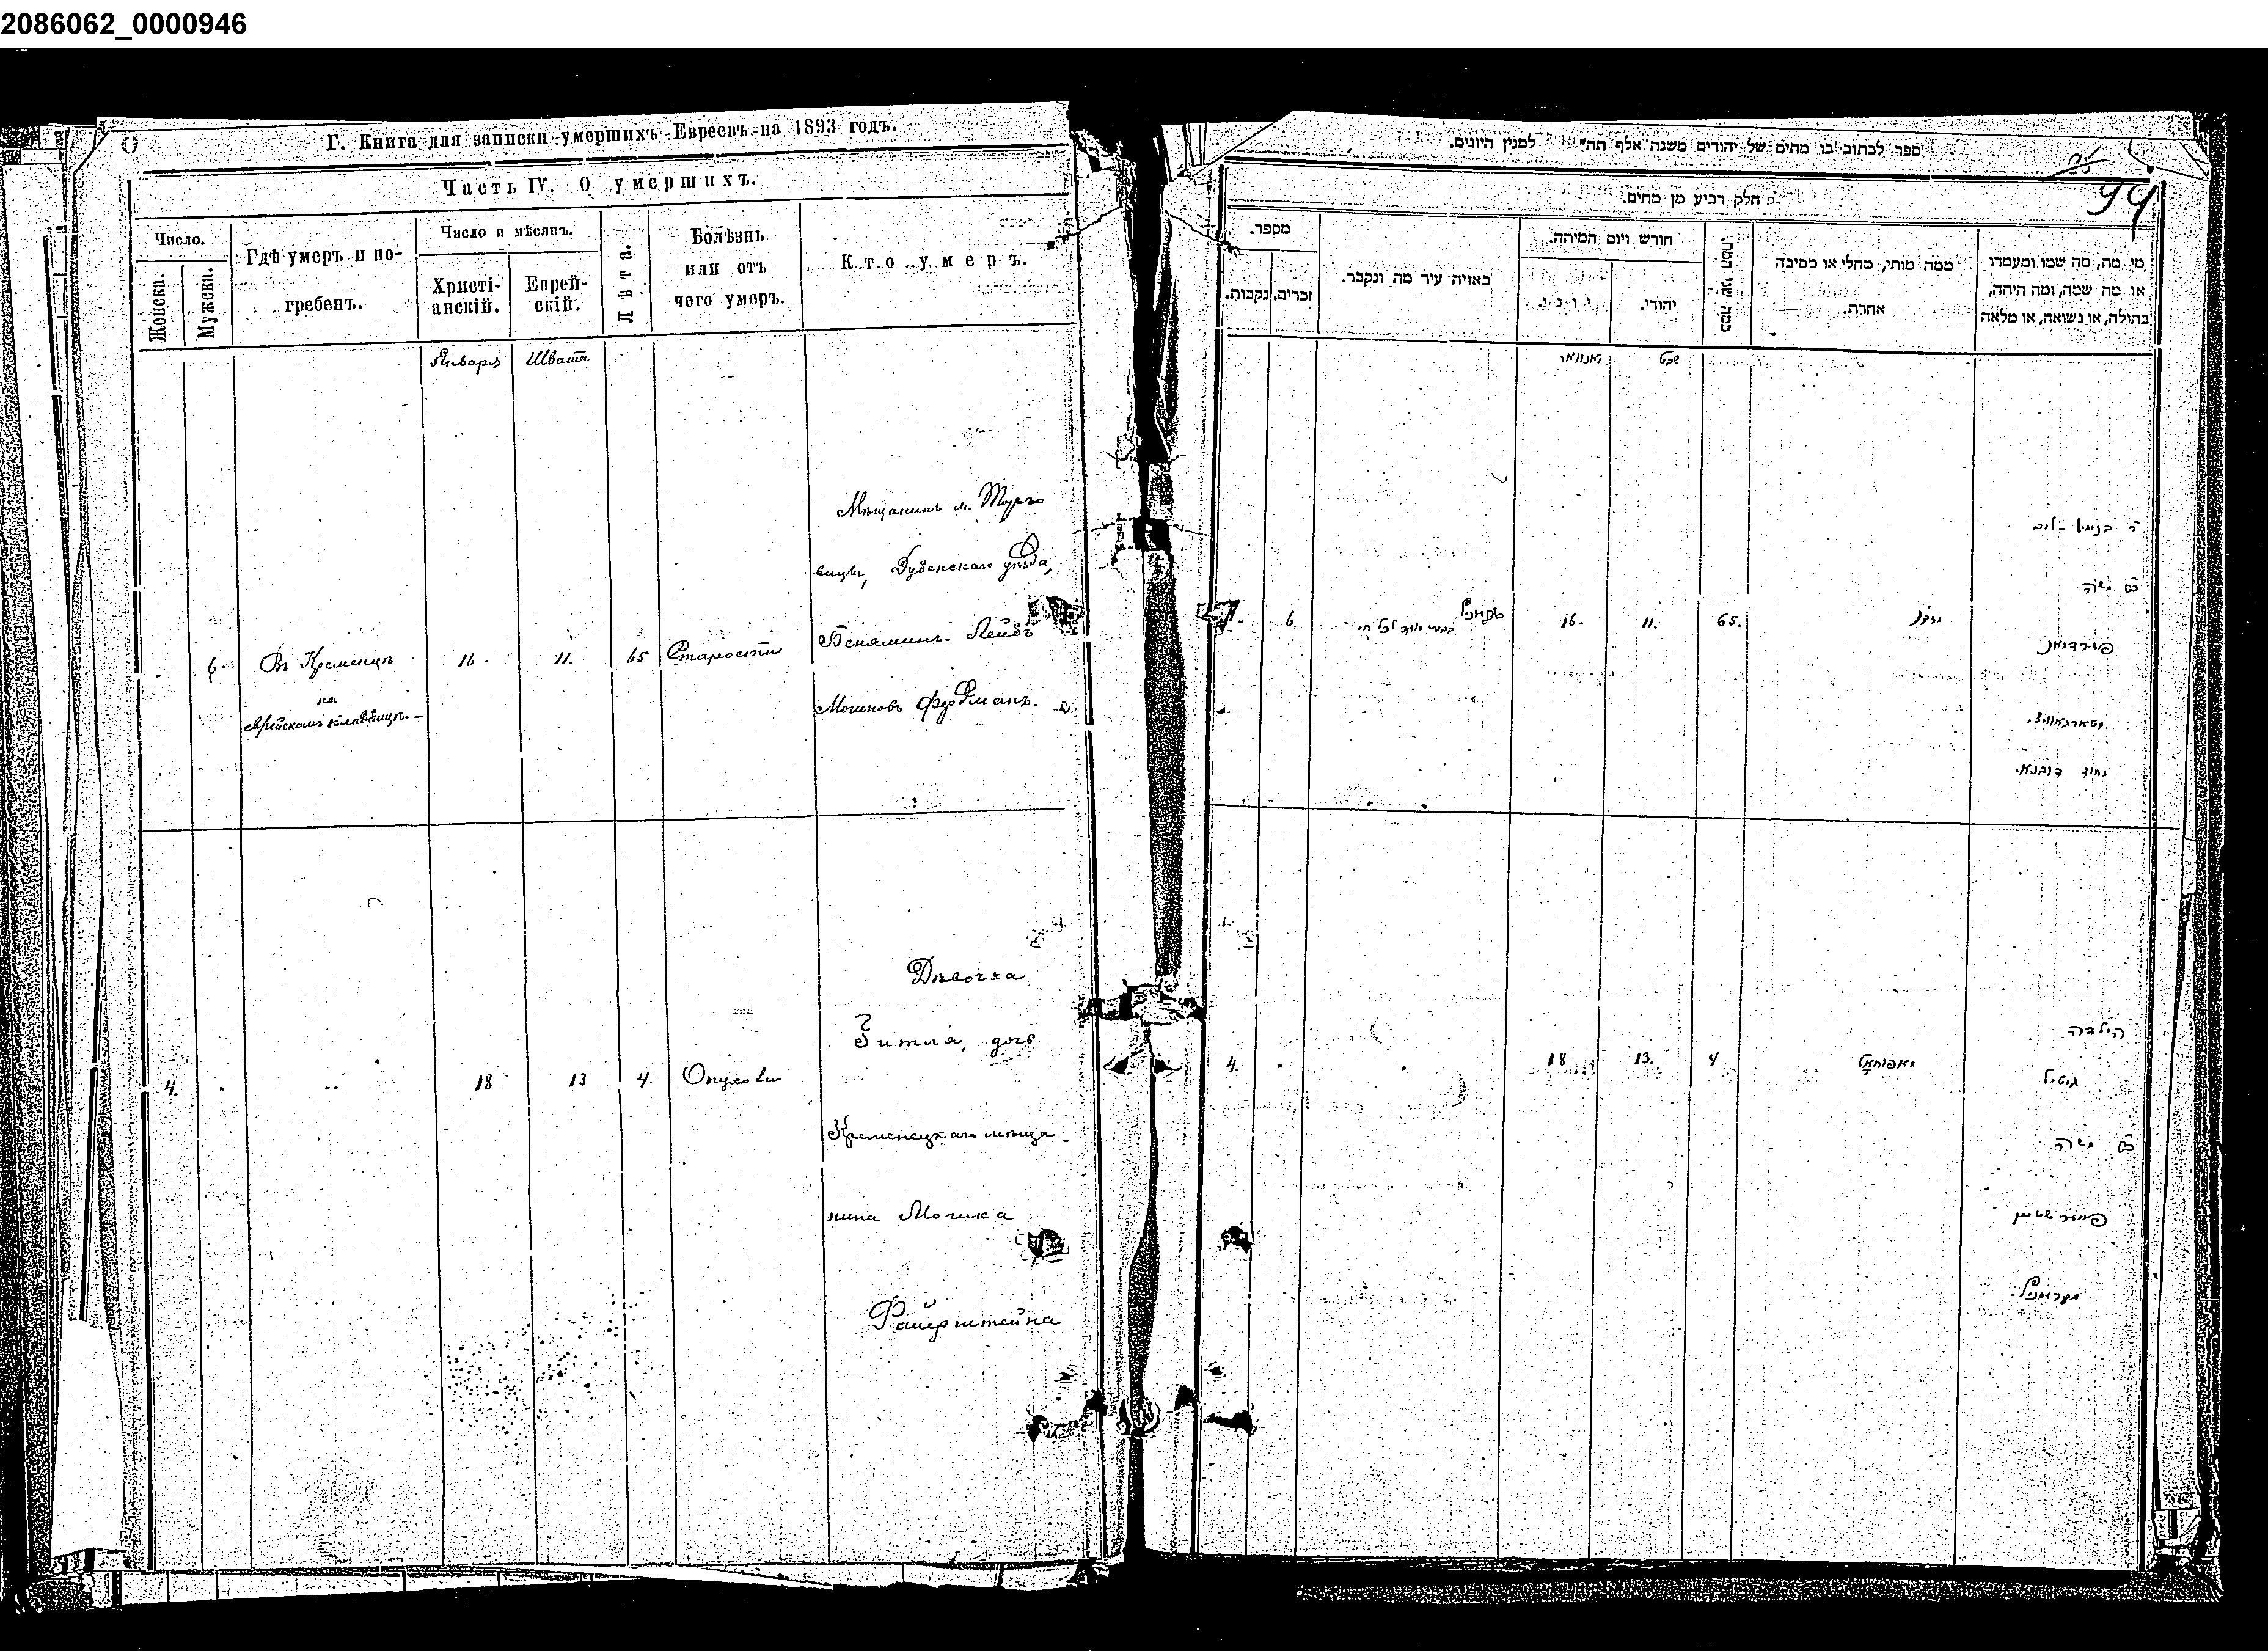 2086062_0000946
Г. Книга для записки умершихъ Евреевъ на 1893 годъ.
Часть IV. О умершихъ.
Число.
Женска.
Мужска.
Гдѣ умеръ и по-
гребенъ.
Число и мѣсяцъ.
Христі-
анскій.
Еврей-
скій.
Лѣта.
Болѣзнь
или отъ
чего умеръ.
Кто умеръ.
Января
Швата
6.
Въ Кременцѣ
на
еврейскомъ кладбищѣ.
16.
11.
65
Старости
Мѣщанинъ м. Торго
вицы, Дубенскаго уѣзда,
Беняминъ-Лейбъ
Мошковъ Фердманъ.
4.
18
13
4
Опухоли
Дѣвочка
Гитля, дочь
Кременецкаго мѣща-
нина Мошка
Файерштейна
ספר לכתוב בו מתים של יהודים משנת אלף תת״ למנין היונים.
94
חלק רביע מן מתים.
מספר.
נקבות.
זכרים.
באיזה עיר מת ונקבר.
חורש ויום המיתה.
יוני.
יהודי.
כמה שני המת.
ממה מותי, מחלי או מסיבה
אחרת.
מי מת, מה שמו ומעמדו
או מה שמה, ומה היתה,
בתולה, או נשואה, או מלאה
יאנוואר
שבט
6
16.
11.
65.
זקן
ר׳ בנימין-ליב
משה
פערדמאן
דובנא.
4.
18
13.
4
הילדה
גיטיל
משה
פייערשטיין